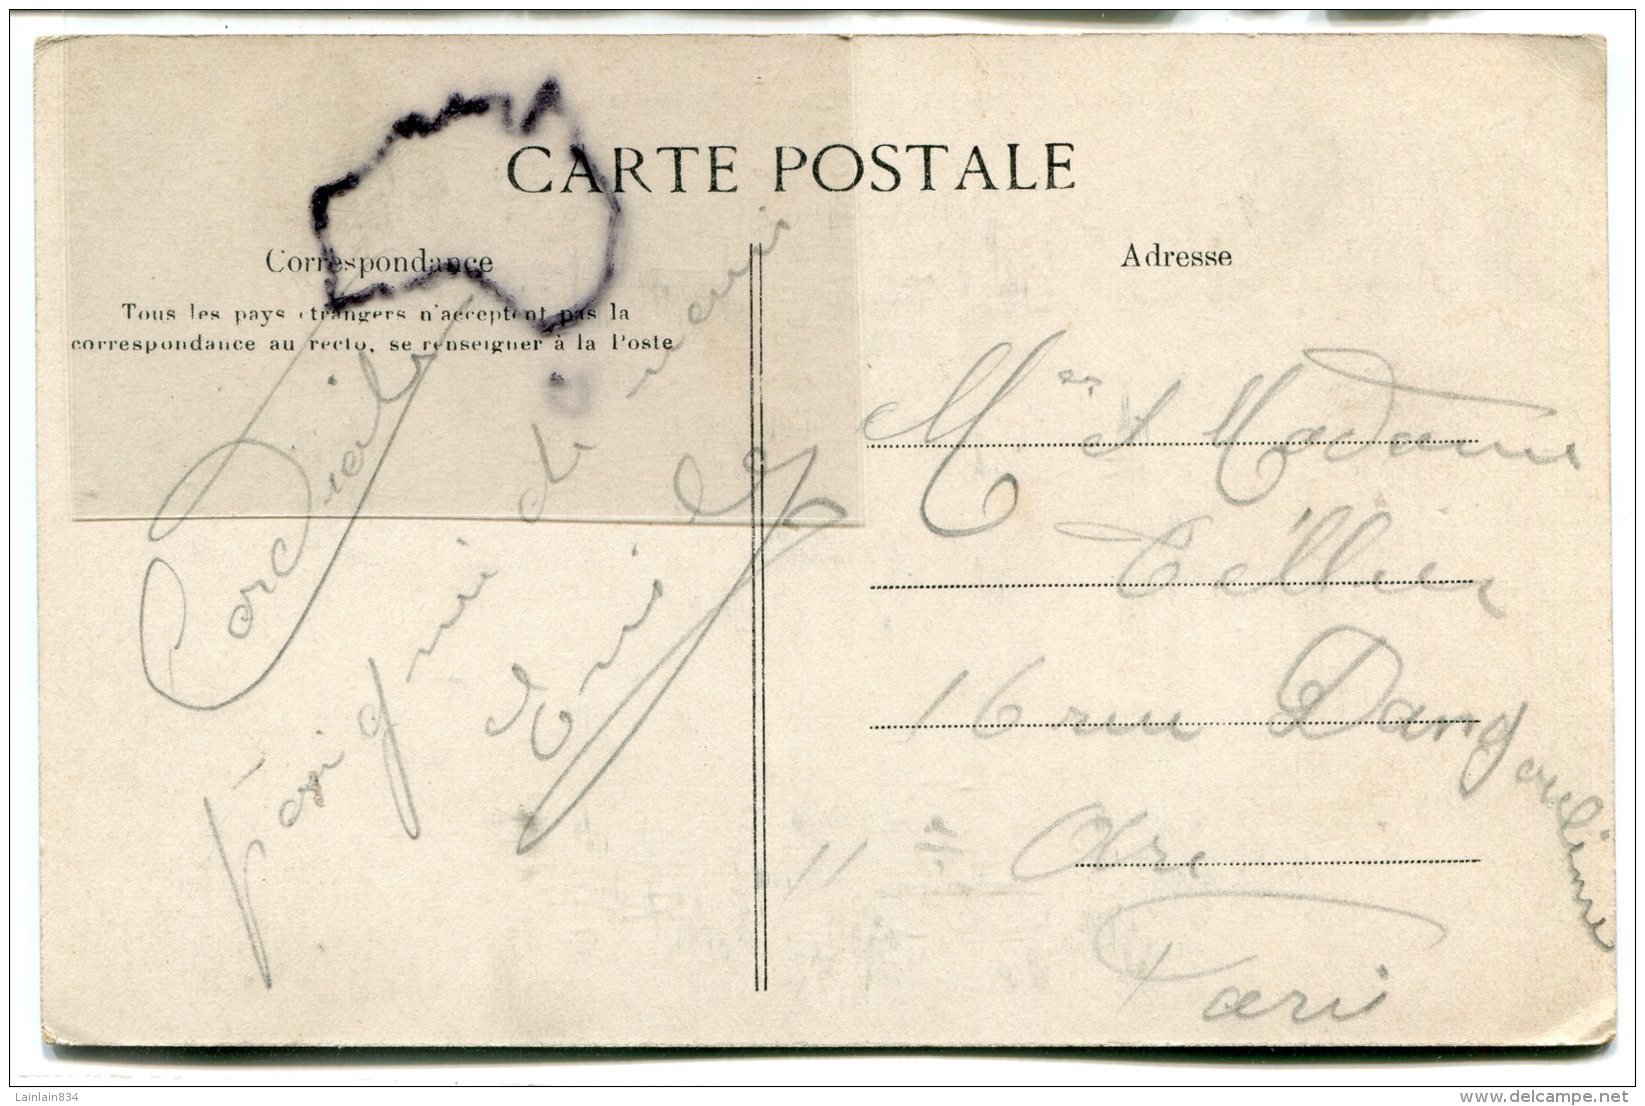 CARTE POSTALE
Correspondance
Tous les pays étrangers n'acceptent pas la
correspondance au recto, se renseigner à la Poste
Cordiale
poignée de main
Adresse
Mr et Madame
Tellier
16 rue Dangoulême
11 e Are
Paris
Lainlain834
www.delcampe.net